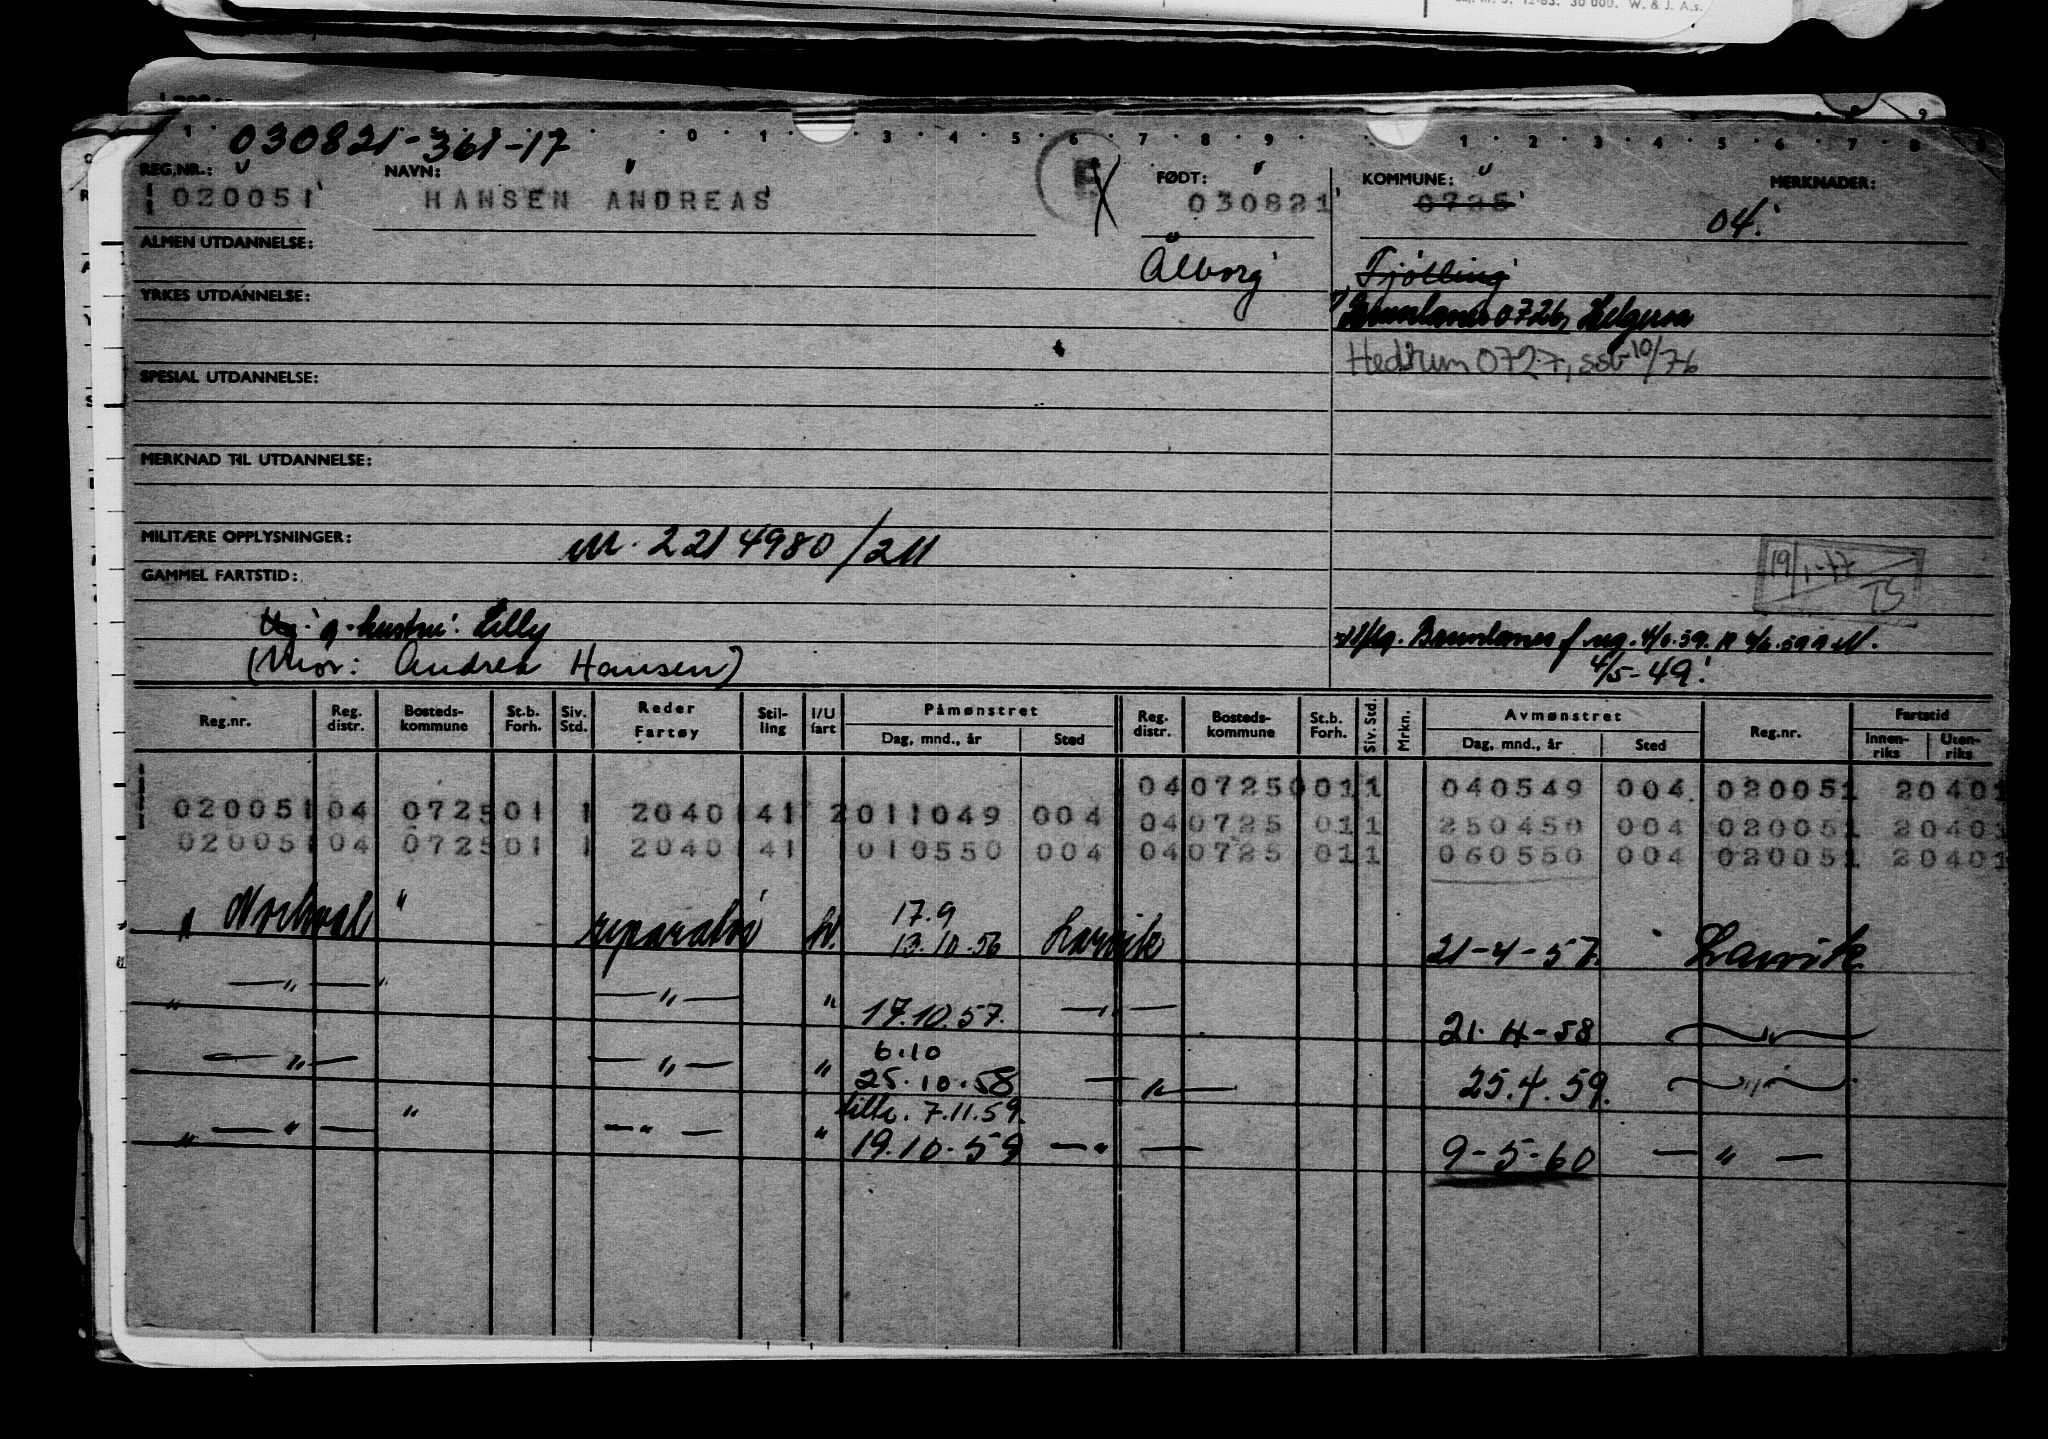 Sdj. nr. 5. 12-63. 30 000. W. & J. A.s.
030821-361-17
REG.NR.: NAVN: FØDT: KOMMUNE: MERKNADER:
020051 HANSEN ANDREAS 030821 0725 04.
ALMEN UTDANNELSE:
Ålborg Tjølling
YRKES UTDANNELSE:
Brunlanes 0726, Helgeroa
Hedrum 0727, ssb 10/76
SPESIAL UTDANNELSE:
MERKNAD TIL UTDANNELSE:
MILITÆRE OPPLYSNINGER: M. 2214980/211
19/1-77 TS
GAMMEL FARTSTID:
Ug. g. hustru: Lilly
Brunlanes
(Mor: Andrea Hansen) 4/5-49.
Reg.nr. Reg. distr. Bosteds-kommune St.b. Forh. Siv. Std. Reder Fartøy Stil-ling I/U fart Påmønstret Dag, mnd., år Sted Reg. distr. Bosteds-kommune St.b. Forh. Siv. Std. Mrkn. Avmønstret Dag, mnd., år Sted Reg.nr. Fartstid Innen-riks Uten-riks
04 0725 0 01 1 1 040549 004 020051 20401
020051 04 0725 01 1 20401 41 2 011049 004 04 0725 01 1 1 250450 004 020051 20401
020051 04 0725 01 1 20401 41 010550 004 04 0725 01 1 1 060550 004 020051 20401
" Norhval " reparatør hv. 17.9
13.10.56 Larvik 21-4-57. Larvik
" — " — " — " — " 17.10.57. — " — 21-4-58 — " —
— " — — " — " 6.10
25.10.58 — " — 25.4.59. — " —
tilk. 7.11.59.
" — " — " — " — " 19.10.59 — " — 9-5-60 — " —